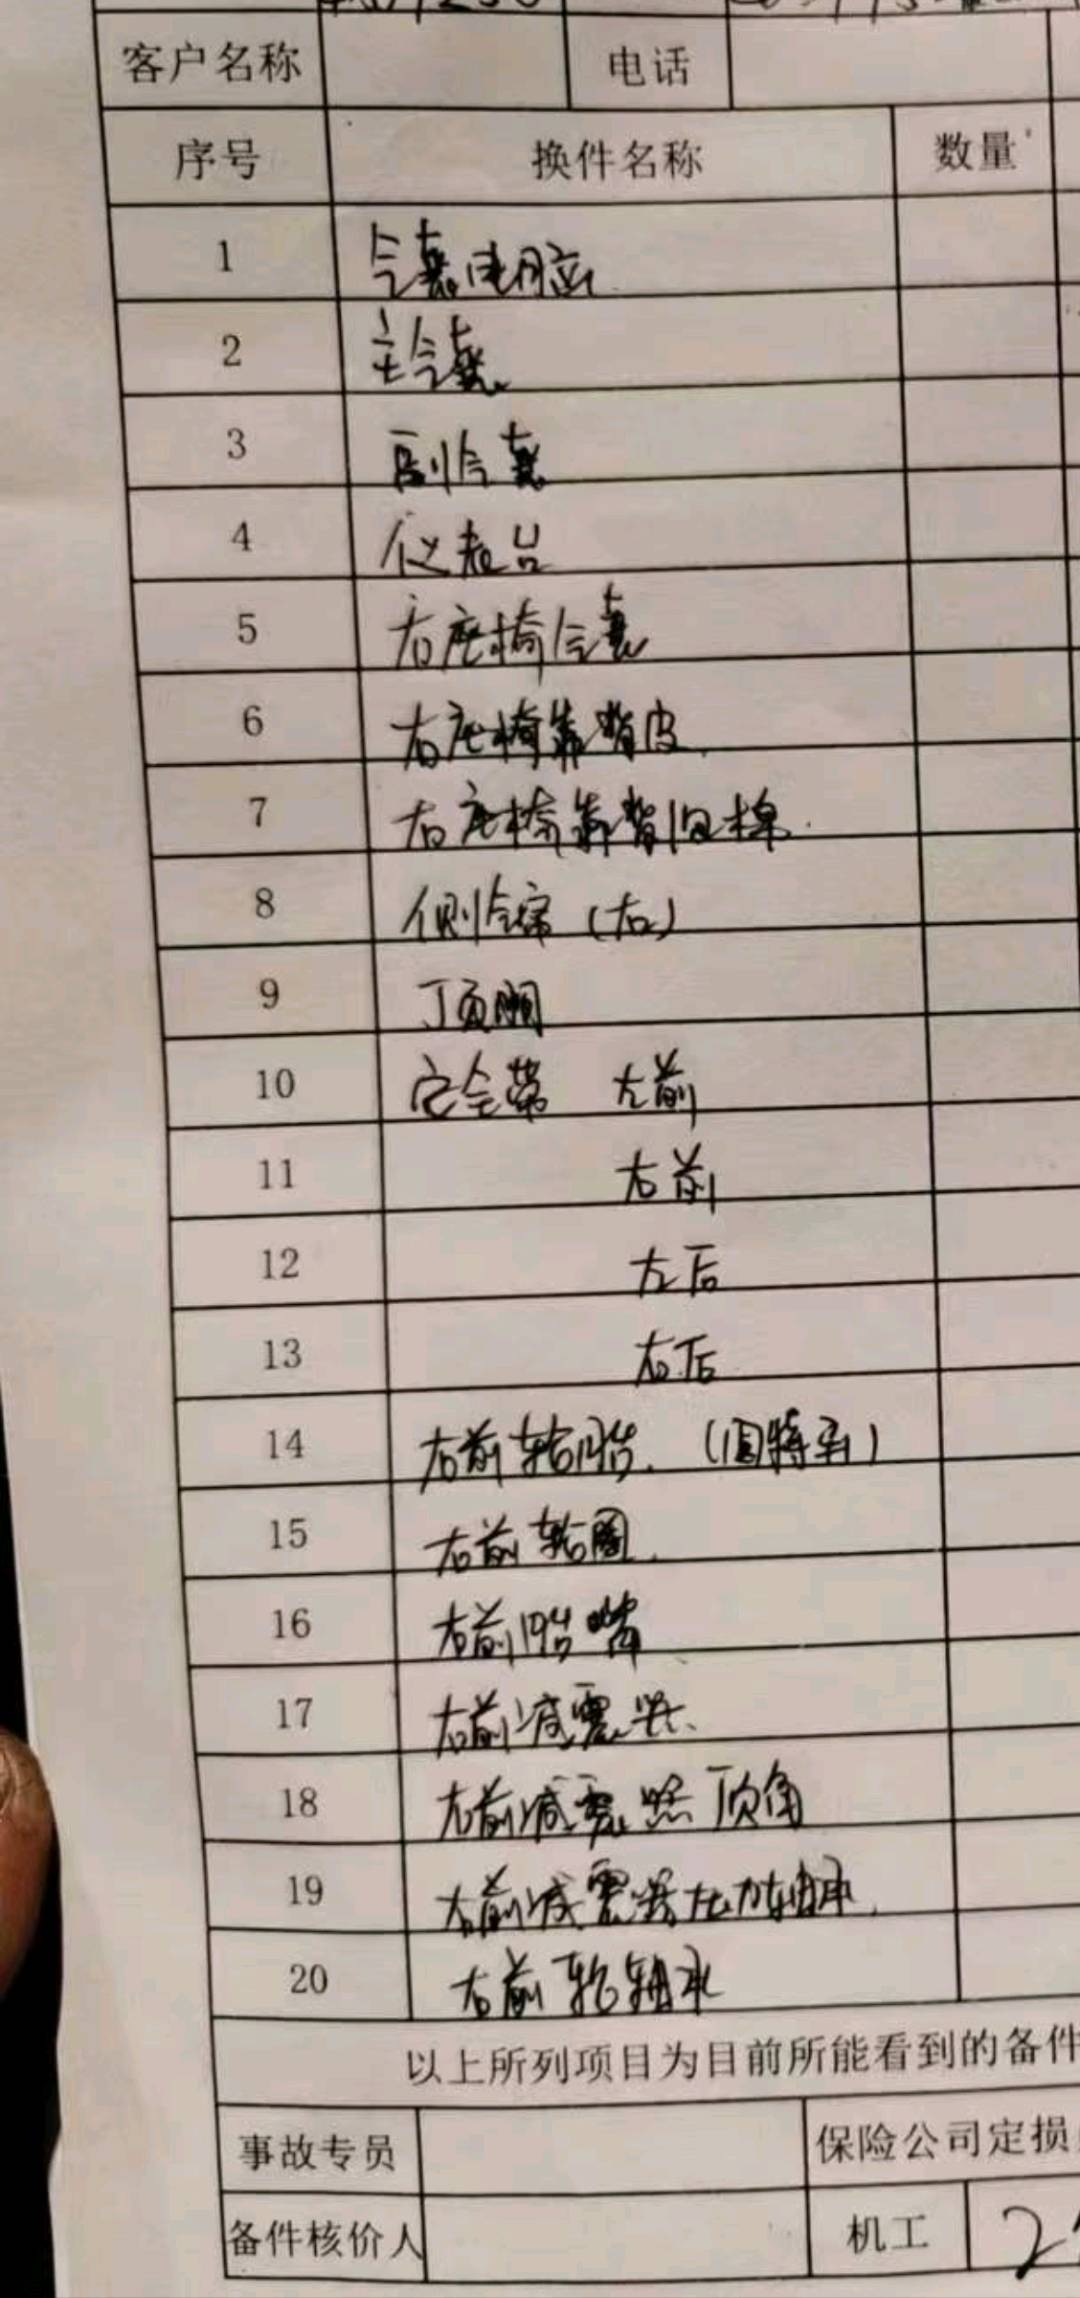 客户名称 电话
序号 换件名称 数量
1 气囊电脑
2 主气囊
3 副气囊
4 仪表台
5 右座椅气囊
6 右座椅靠背皮
7 右座椅靠背海棉
8 侧气帘（右）
9 顶棚
10 安全带 左前
11 右前
12 左后
13 右后
14 右前轮胎（固特异）
15 右前轮圈
16 右前胎嘴
17 右前减震器
18 右前减震器顶角
19 右前减震器压力轴承
20 右前轮轴承
以上所列项目为目前所能看到的备件
事故专员 保险公司定损
备件核价人 机工